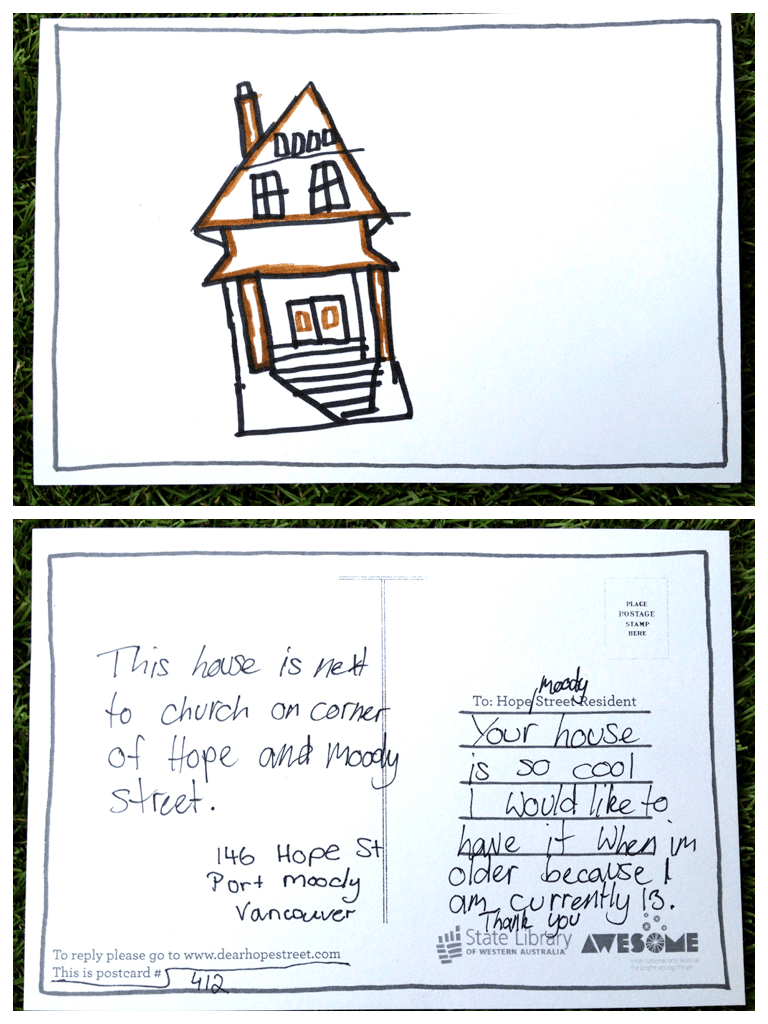 This house is next
to church on corner
of Hope and Moody
street.
146 Hope St
Port Moody
Vancouver
To reply please go to www.dearhopestreet.com
This is postcard #
412
PLACE
POSTAGE
STAMP
HERE
moody
To: Hope, Street Resident
Your house
is so cool
I would like to
have it when im
older because I
am currently 13.
Thank you
State Library
OF WESTERN AUSTRALIA
AWESOME
international arts festival
for bright young things